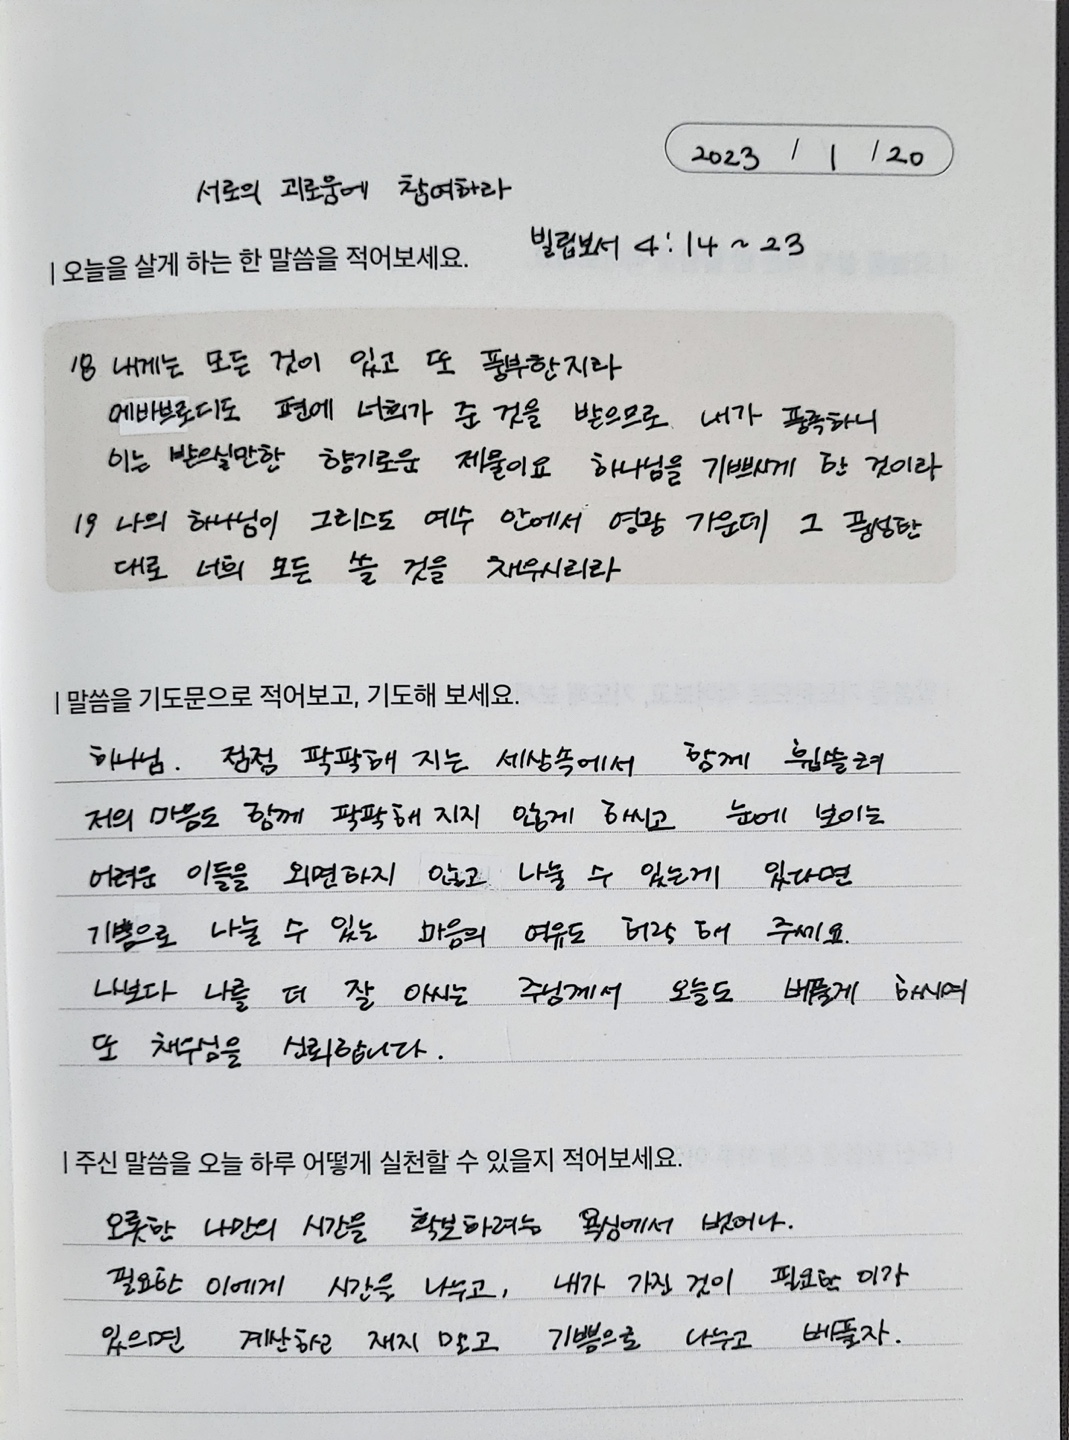 2023 / 1 / 20
서로의 괴로움에 참여하라
빌립보서 4:14~23
| 오늘을 살게 하는 한 말씀을 적어보세요.
18 내게는 모든 것이 있고 또 풍부한지라
에바브로디도 편에 너희가 준 것을 받으므로 내가 풍족하니
이는 받으실만한 향기로운 제물이요 하나님을 기쁘시게 한 것이라
19 나의 하나님이 그리스도 예수 안에서 영광 가운데 그 풍성한
대로 너희 모든 쓸 것을 채우시리라
| 말씀을 기도문으로 적어보고, 기도해 보세요.
하나님. 점점 팍팍해 지는 세상속에서 함께 휩쓸려
저의 마음도 함께 팍팍해 지지 않게 하시고 눈에 보이는
어려운 이들을 외면하지 않고 나눌 수 있는게 있다면
기쁨으로 나눌 수 있는 마음의 여유도 허락 해 주세요.
나보다 나를 더 잘 아시는 주님께서 오늘도 베풀게 하시며
또 채우심을 신뢰합니다.
| 주신 말씀을 오늘 하루 어떻게 실천할 수 있을지 적어보세요.
오롯한 나만의 시간을 확보하려는 욕심에서 벗어나.
필요한 이에게 시간을 나누고, 내가 가진 것이 필요한 이가
있으면 계산하고 재지 말고 기쁨으로 나누고 베풀자.